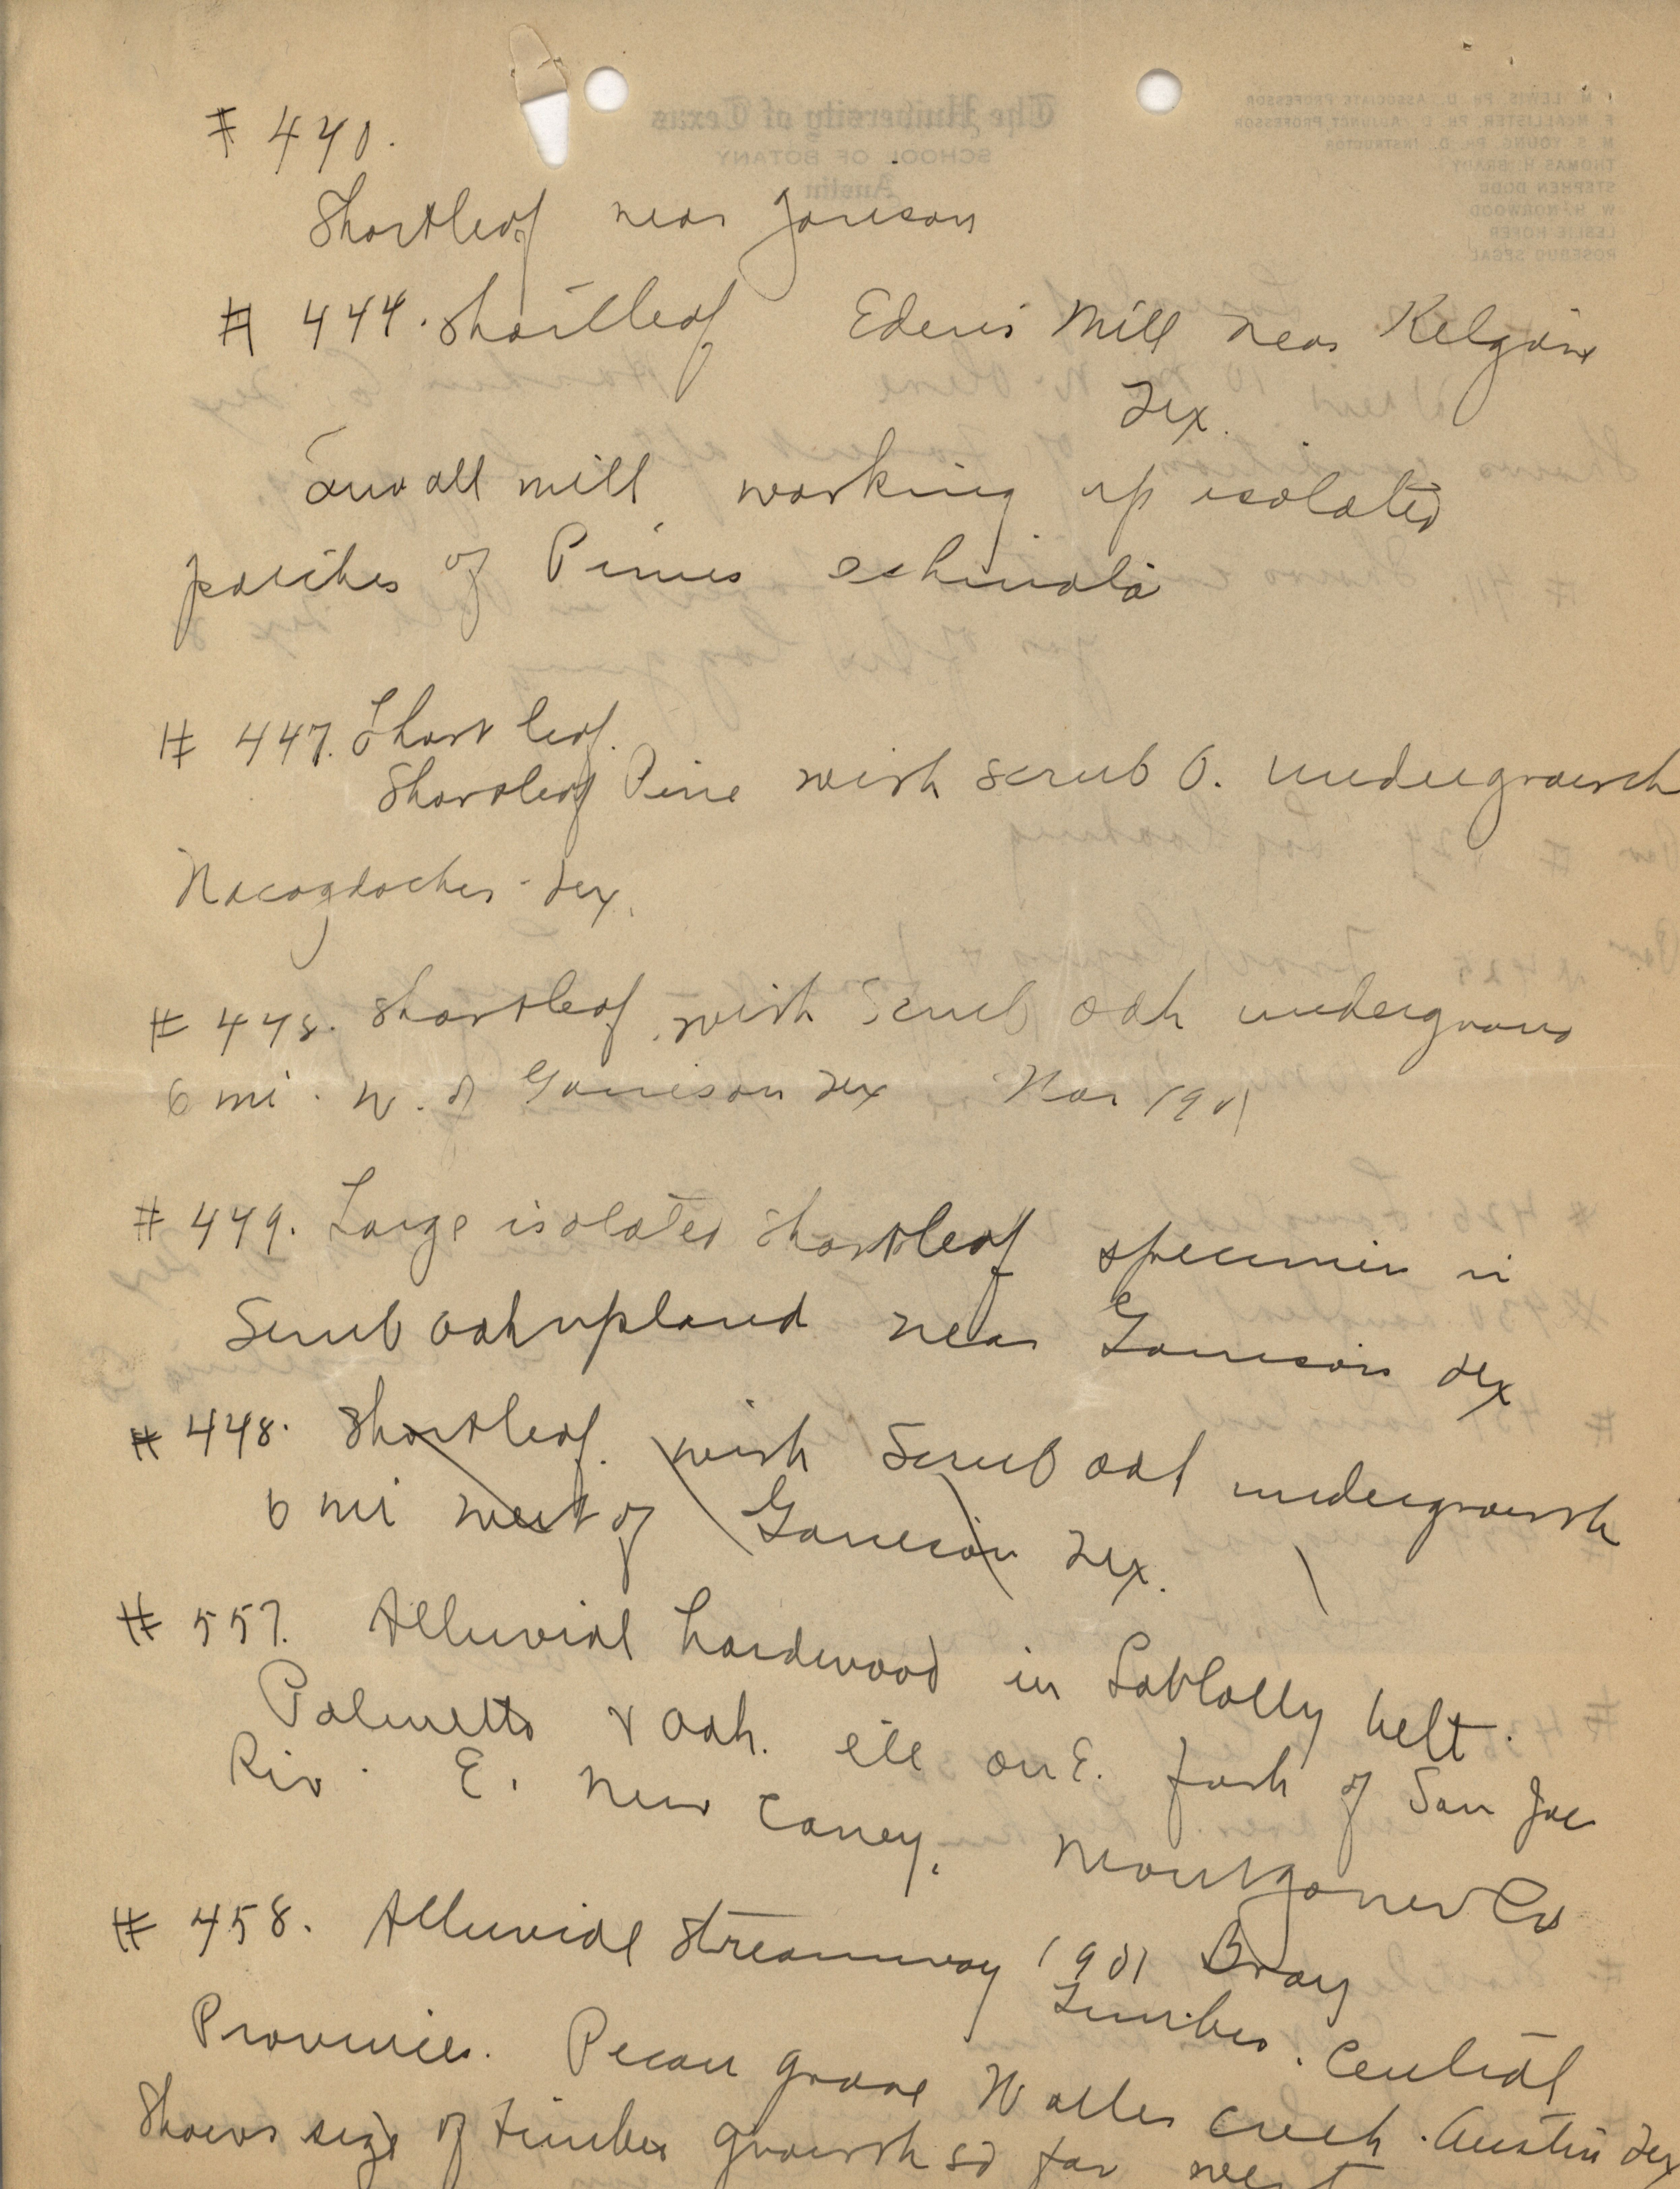 # 440.
Shortleaf near Garrison
# 444. Shortleaf Edens Mill near Kilgore
Tex.
Small mill working up isolated
patches of Pinus echinata
# 447. Short leaf.
Shortleaf Pine with scrub O. undergrowth
Nacogdoches - Tex.
# 448. Shortleaf with Scrub oak undergrowth
6 mi. W. of Garrison Tex Mar 1901
# 449. Large isolated shortleaf specimen in
Scrub oak upland near Garrison Tex
# 448. Shortleaf. with Scrub oak undergrowth
6 mi west of Garrison Tex.
# 557. Alluvial hardwood in Loblolly belt.
Palmetto & Oak. on E. fork of San Jac
Riv. E. New Caney. Montgomery Co
# 458. Alluvial Streamway 1901 Bray
Timber. Central
Province. Pecan grove Waller creek. Austin Tex
Shows size of timber growth so far west
The University of Texas
SCHOOL OF BOTANY
Austin
I. M. LEWIS, PH. D., ASSOCIATE PROFESSOR
F. McALLISTER, PH. D., ADJUNCT PROFESSOR
M. S. YOUNG, PH. D., INSTRUCTOR
THOMAS H. BRADY
STEPHEN DODD
W. H. NORWOOD
LESLIE HOFER
ROSEBUD SEGAL